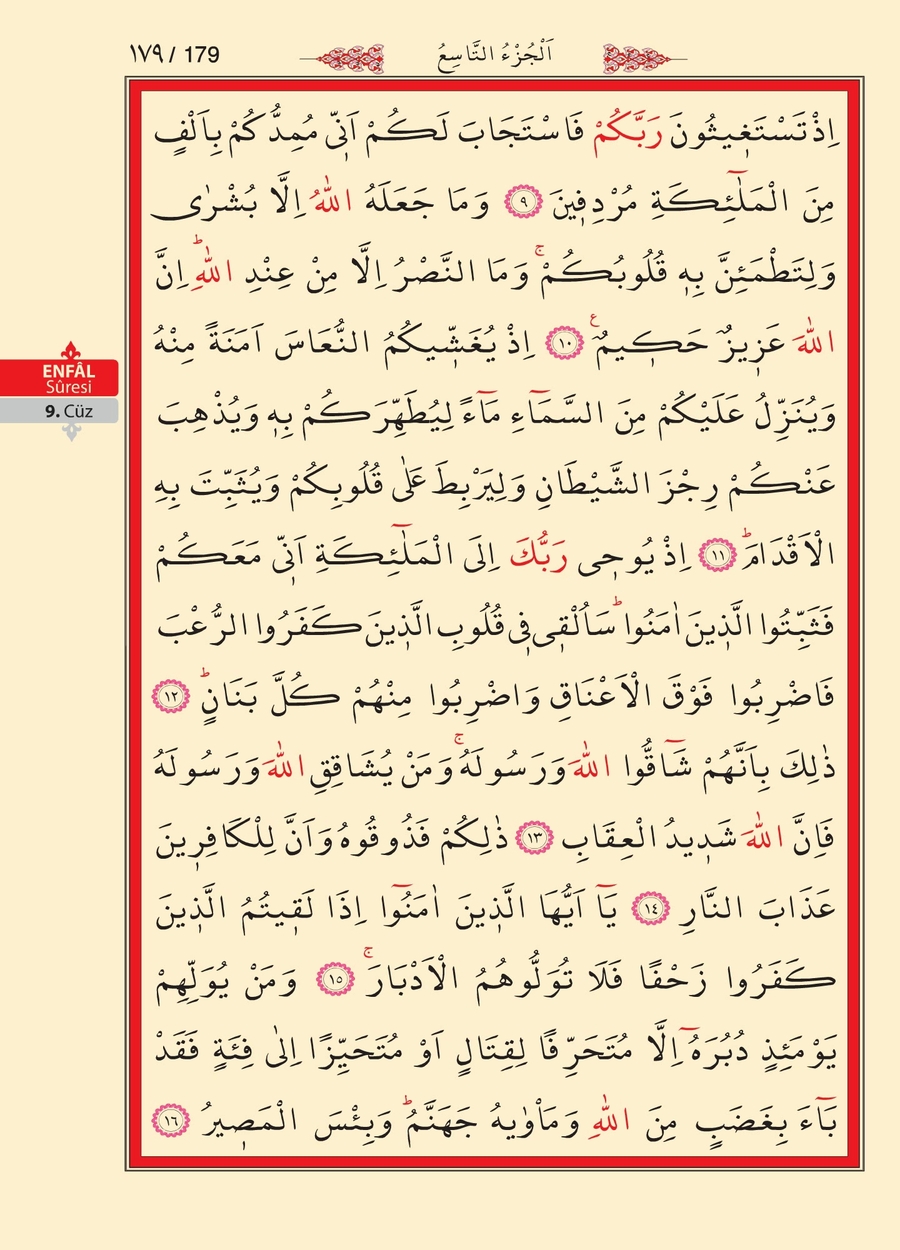 ١٧٩ / 179
اَلْجُزْءُ التَّاسِعُ
ENFÂL
Sûresi
9. Cüz
اِذْ تَسْتَغ۪يثُونَ رَبَّكُمْ فَاسْتَجَابَ لَكُمْ اَنّ۪ي مُمِدُّكُمْ بِاَلْفٍ
مِنَ الْمَلٰٓئِكَةِ مُرْدِف۪ينَ ﴿٩﴾ وَمَا جَعَلَهُ اللّٰهُ اِلَّا بُشْرٰى
وَلِتَطْمَئِنَّ بِه۪ قُلُوبُكُمْۚ وَمَا النَّصْرُ اِلَّا مِنْ عِنْدِ اللّٰهِۜ اِنَّ
اللّٰهَ عَز۪يزٌ حَك۪يمٌ۟ ﴿١٠﴾ اِذْ يُغَشّ۪يكُمُ النُّعَاسَ اَمَنَةً مِنْهُ
وَيُنَزِّلُ عَلَيْكُمْ مِنَ السَّمَٓاءِ مَٓاءً لِيُطَهِّرَكُمْ بِه۪ وَيُذْهِبَ
عَنْكُمْ رِجْزَ الشَّيْطَانِ وَلِيَرْبِطَ عَلٰى قُلُوبِكُمْ وَيُثَبِّتَ بِهِ
الْاَقْدَامَۜ ﴿١١﴾ اِذْ يُوح۪ي رَبُّكَ اِلَى الْمَلٰٓئِكَةِ اَنّ۪ي مَعَكُمْ
فَثَبِّتُوا الَّذ۪ينَ اٰمَنُواۜ سَاُلْق۪ي ف۪ي قُلُوبِ الَّذ۪ينَ كَفَرُوا الرُّعْبَ
فَاضْرِبُوا فَوْقَ الْاَعْنَاقِ وَاضْرِبُوا مِنْهُمْ كُلَّ بَنَانٍۜ ﴿١٢﴾
ذٰلِكَ بِاَنَّهُمْ شَٓاقُّوا اللّٰهَ وَرَسُولَهُۚ وَمَنْ يُشَاقِقِ اللّٰهَ وَرَسُولَهُ
فَاِنَّ اللّٰهَ شَد۪يدُ الْعِقَابِ ﴿١٣﴾ ذٰلِكُمْ فَذُوقُوهُ وَاَنَّ لِلْكَافِر۪ينَ
عَذَابَ النَّارِ ﴿١٤﴾ يَٓا اَيُّهَا الَّذ۪ينَ اٰمَنُٓوا اِذَا لَق۪يتُمُ الَّذ۪ينَ
كَفَرُوا زَحْفًا فَلَا تُوَلُّوهُمُ الْاَدْبَارَۚ ﴿١٥﴾ وَمَنْ يُوَلِّهِمْ
يَوْمَئِذٍ دُبُرَهُٓ اِلَّا مُتَحَرِّفًا لِقِتَالٍ اَوْ مُتَحَيِّزًا اِلٰى فِئَةٍ فَقَدْ
بَٓاءَ بِغَضَبٍ مِنَ اللّٰهِ وَمَأْوٰيهُ جَهَنَّمُۜ وَبِئْسَ الْمَص۪يرُ ﴿١٦﴾